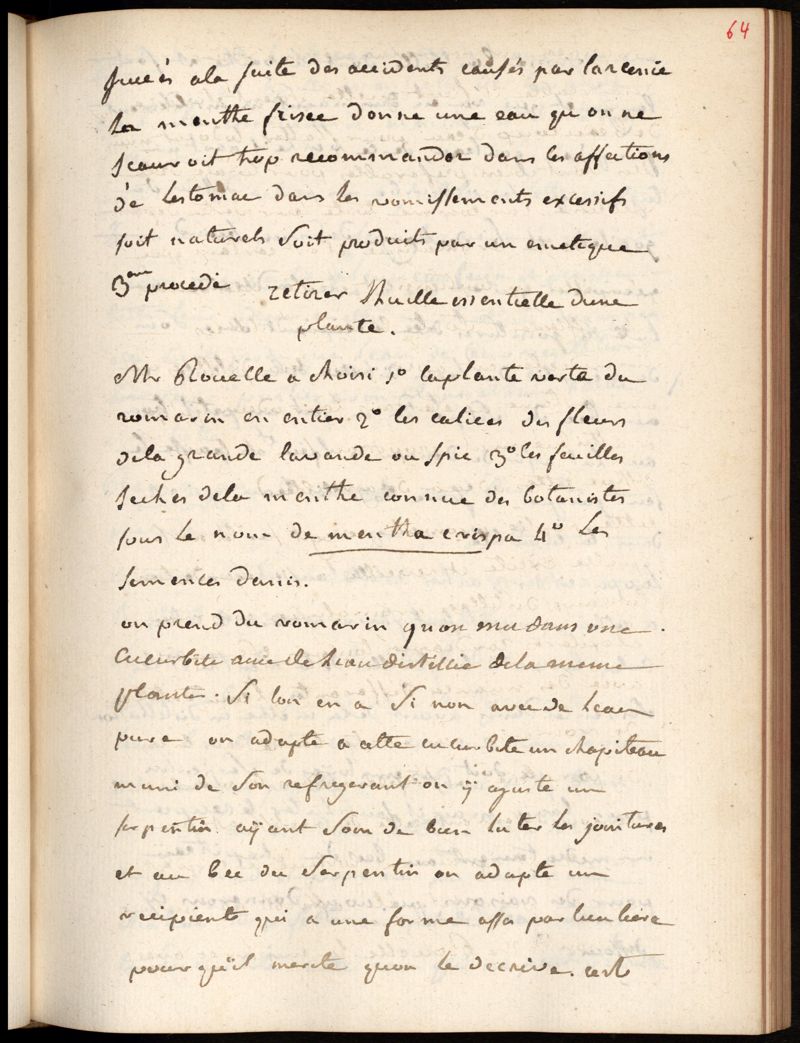 64
sucés a la suite des accidents causés par larcenic
la menthe frisee donne une eau qu'on ne
scauroit trop recommander dans les affections
de lestomac dans les vomissements excessifs
soit naturels soit produits par un emetique
3eme procedé retirer lhuille essentielle dune
plante.
Mr Rouelle a choisi 1o la plante verte du
romarin en entier 2o les calices des fleurs
de la grande lavande ou spic 3o les feuilles
seches de la menthe connue des botanistes
sous le nom de mentha crispa 4o les
semences danis.
on prend du romarin quon met dans une
cucurbite avec de leau distillée de la meme
plante. Si lon en a Si non avec de leau
pure on adapte a cette cucurbite un chapiteau
muni de Son refrigerant on ÿ ajuste un
serpentin aÿant Soin de bien luter les jointures
et au bec du Serpentin on adapte un
recipient qui a une forme assés particuliere
pour quïl merite quon le decrive. cest